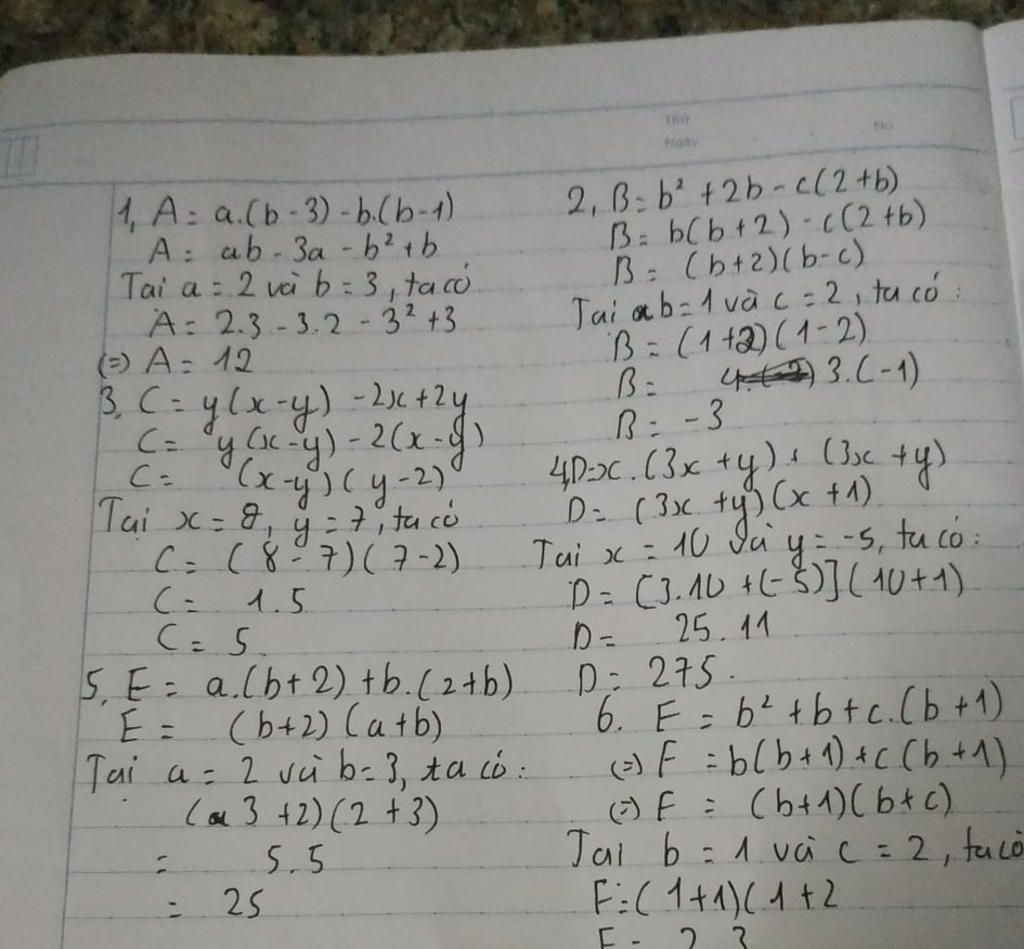 Thứ
Ngày
No.
1, A = a.(b - 3) - b.(b-1)
A = ab - 3a - b² + b
Tại a = 2 và b = 3, ta có
A = 2.3 - 3.2 - 3² + 3
(=) A = 12
3, C = y(x-y) - 2x + 2y
C = y(x-y) - 2(x-y)
C = (x-y)(y-2)
Tại x = 8, y = 7, ta có
C = (8 - 7)(7-2)
C = 1.5
C = 5
5, E = a.(b+2) + b.(2+b)
E = (b+2)(a+b)
Tại a = 2 và b = 3, ta có:
(3+2)(2+3)
= 5.5
= 25
2, B = b² + 2b - c(2+b)
B = b(b+2) - c(2+b)
B = (b+2)(b-c)
Tại b = 1 và c = 2, ta có:
B = (1+2)(1-2)
B = 3.(-1)
B = -3
4, D = x.(3x+y) + (3x+y)
D = (3x+y)(x+1)
Tại x = 10 và y = -5, ta có:
D = [3.10 + (-5)](10+1)
D = 25.11
D = 275.
6. F = b² + b + c.(b+1)
(=) F = b(b+1) + c(b+1)
(=) F = (b+1)(b+c)
Tại b = 1 và c = 2, ta có
F = (1+1)(1+2
F = 2.3